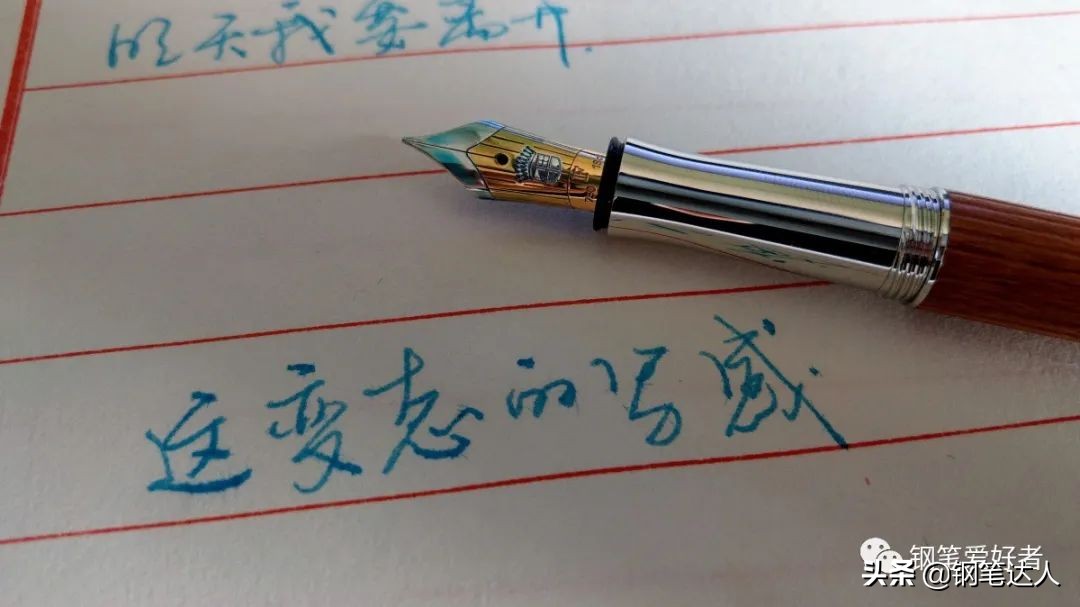 明天我要离开.
这变态的写感.
钢笔爱好者
头条 @钢笔达人